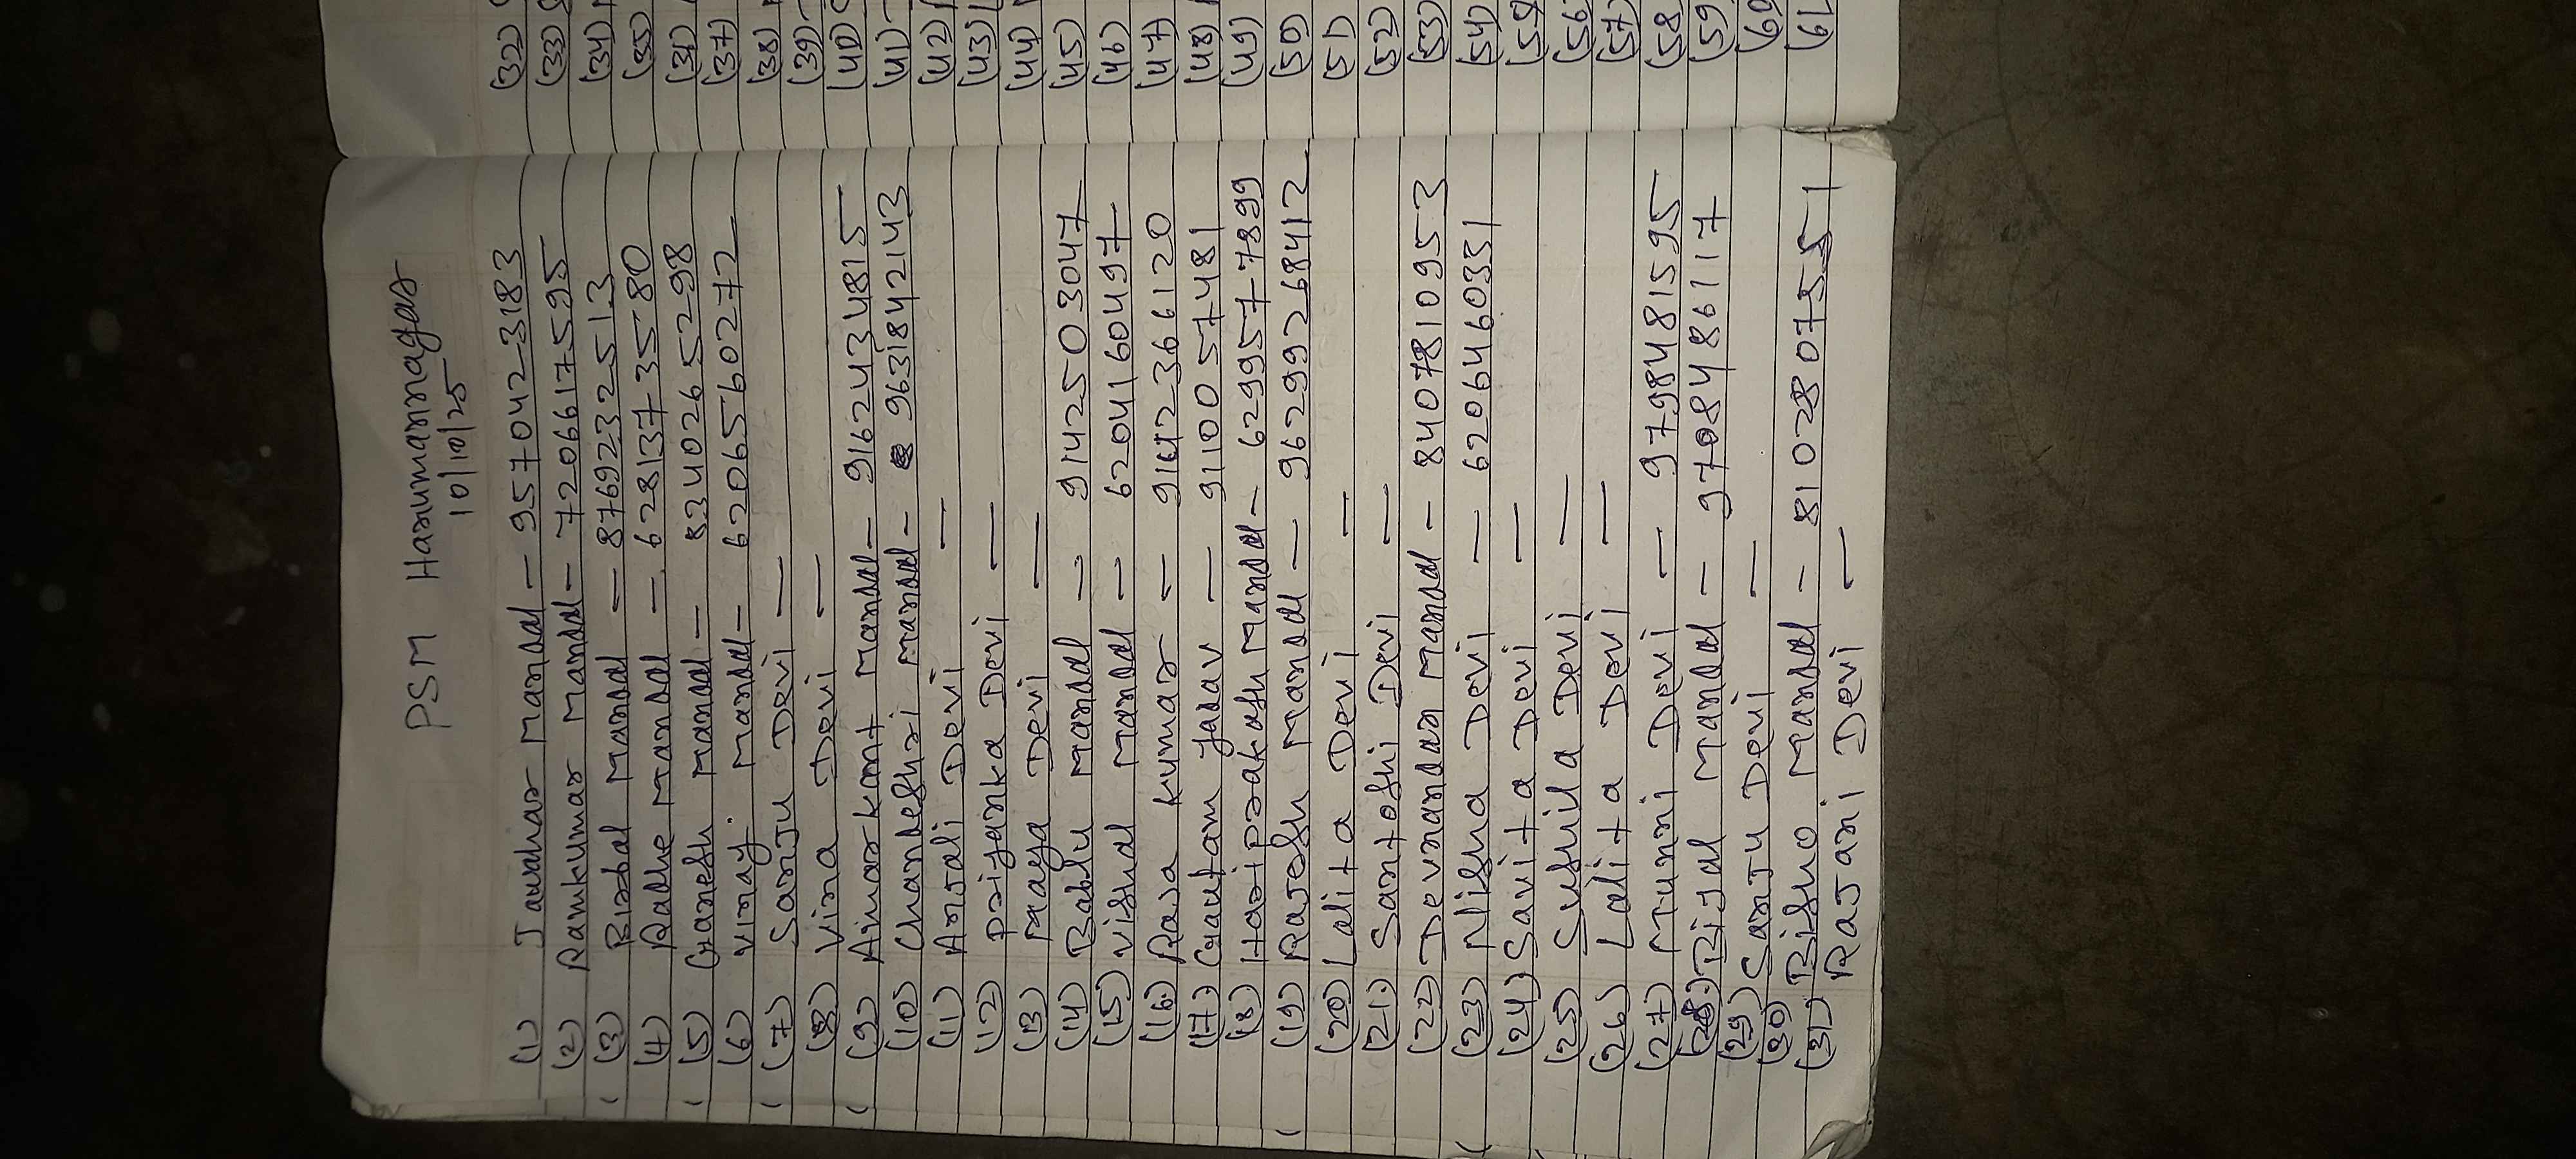 PSM Hanumannagar
10/10/25
(1) Jawahar Mandal - 9570423183
(2) Ramkumar Mandal - 7206617595
(3) Birbal Mandal - 8769232513
(4) Radhe Mandal - 6281373580
(5) Ganesh Mandal - 8340265298
(6) Vinay Mandal - 6206560272
(7) Sanju Devi -
(8) Vina Devi -
(9) Amarkant Mandal - 9162434815
(10) Chandeshri Mandal - 9631842143
(11) Anjali Devi -
(12) Priyanka Devi -
(13) Maaya Devi -
(14) Bablu Mandal - 9142503047
(15) Vishal Mandal - 6204160497
(16) Raja Kumar - 9142366120
(17) Gautam Yadav - 9110057481
(18) Hariprakash Mandal - 6299577899
(19) Rajesh Mandal - 96299268412
(20) Lalita Devi -
(21) Santoshi Devi -
(22) Devnandan Mandal - 8407810953
(23) Nisha Devi - 6206460331
(24) Savita Devi -
(25) Sushila Devi -
(26) Lalita Devi -
(27) Munni Devi - 9798481595
(28) Birjal Mandal - 9708486117
(29) Sanju Devi -
(30) Bishno Mandal - 8102807551
(31) Rajani Devi -
(32)
(33)
(34)
(35)
(36)
(37)
(38)
(39)
(40)
(41)
(42)
(43)
(44)
(45)
(46)
(47)
(48)
(49)
(50)
(51)
(52)
(53)
(54)
(55
(56
(57)
(58
(59
(60
(61